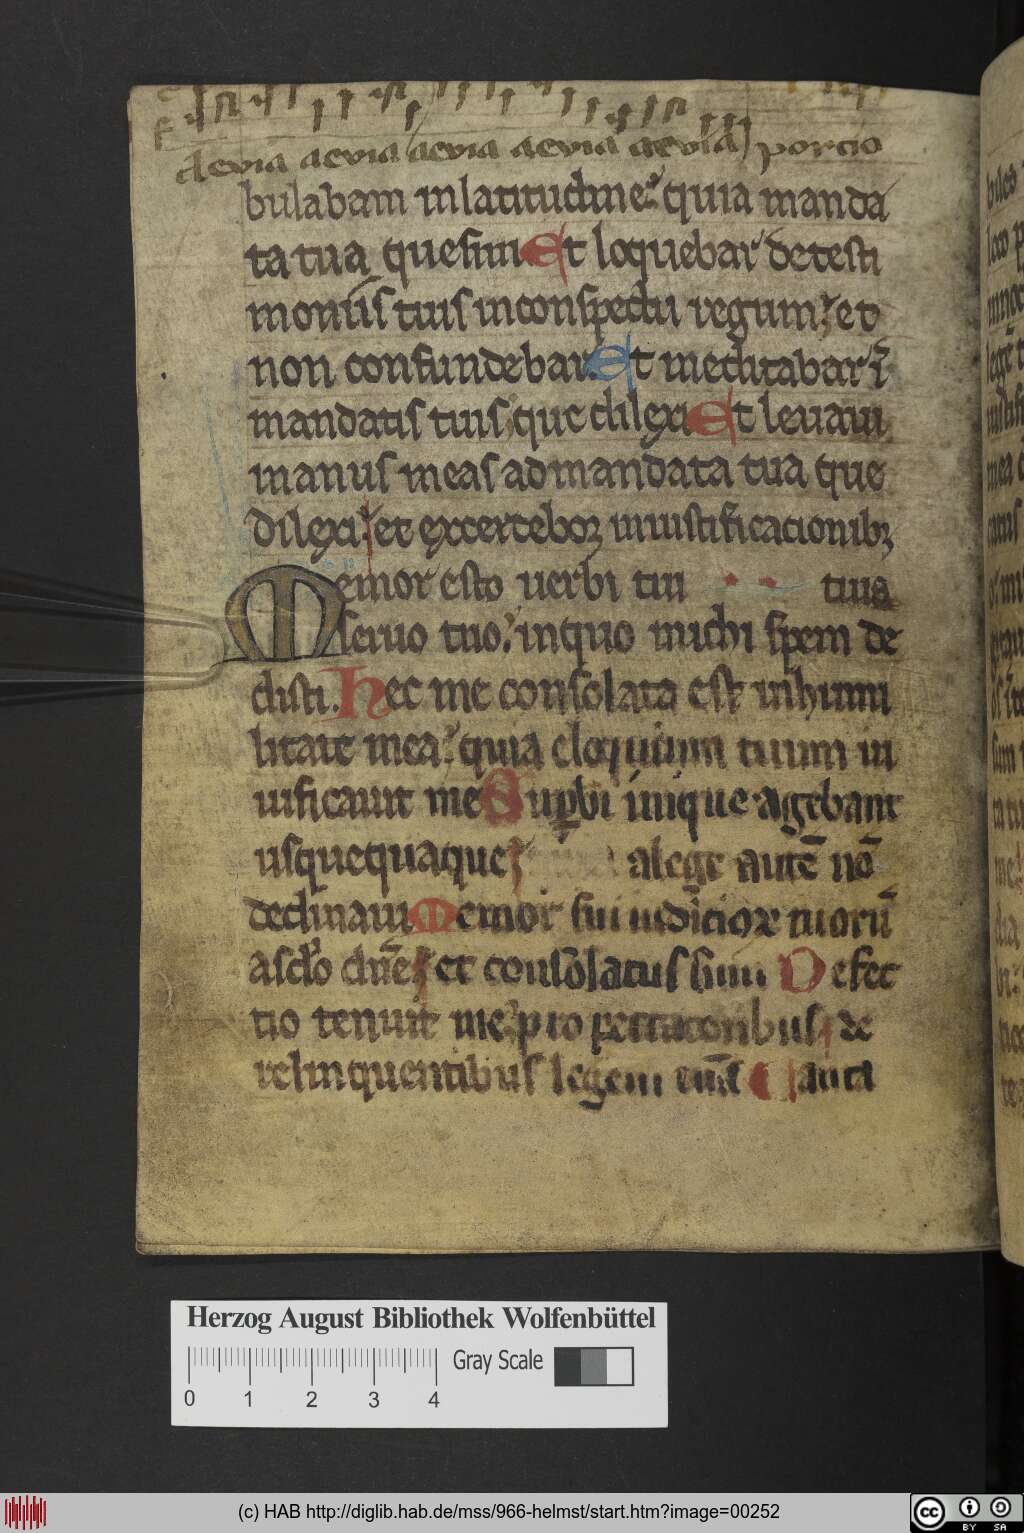 aevia aevia aevia aevia aevia porcio
bulabam in latitudine quia manda
ta tua quesiui Et loquebar de testi
moniis tuis in conspectu regum et
non confundebar. Et meditabar ī
mandatis tuis que dilexi Et leuaui
manus meas ad mandata tua que
dilexi et exercebor in iustificacionibꝫ
Memor esto uerbi tui tuis
seruo tuo in quo michi spem de
disti. Hec me consolata est in humi
litate mea quia eloquium tuum ui
uificauit me Supbi inique agebant
usquequaque a lege autē nō
declinaui Memor fui iudicioꝝ tuorū
a sclo dn̄e et consolatus sum Defec
tio tenuit me pro peccatoribus de
relinquentibus legem tuā Canta
Herzog August Bibliothek Wolfenbüttel
Gray Scale
0 1 2 3 4
(c) HAB http://diglib.hab.de/mss/966-helmst/start.htm?image=00252
cc BY SA